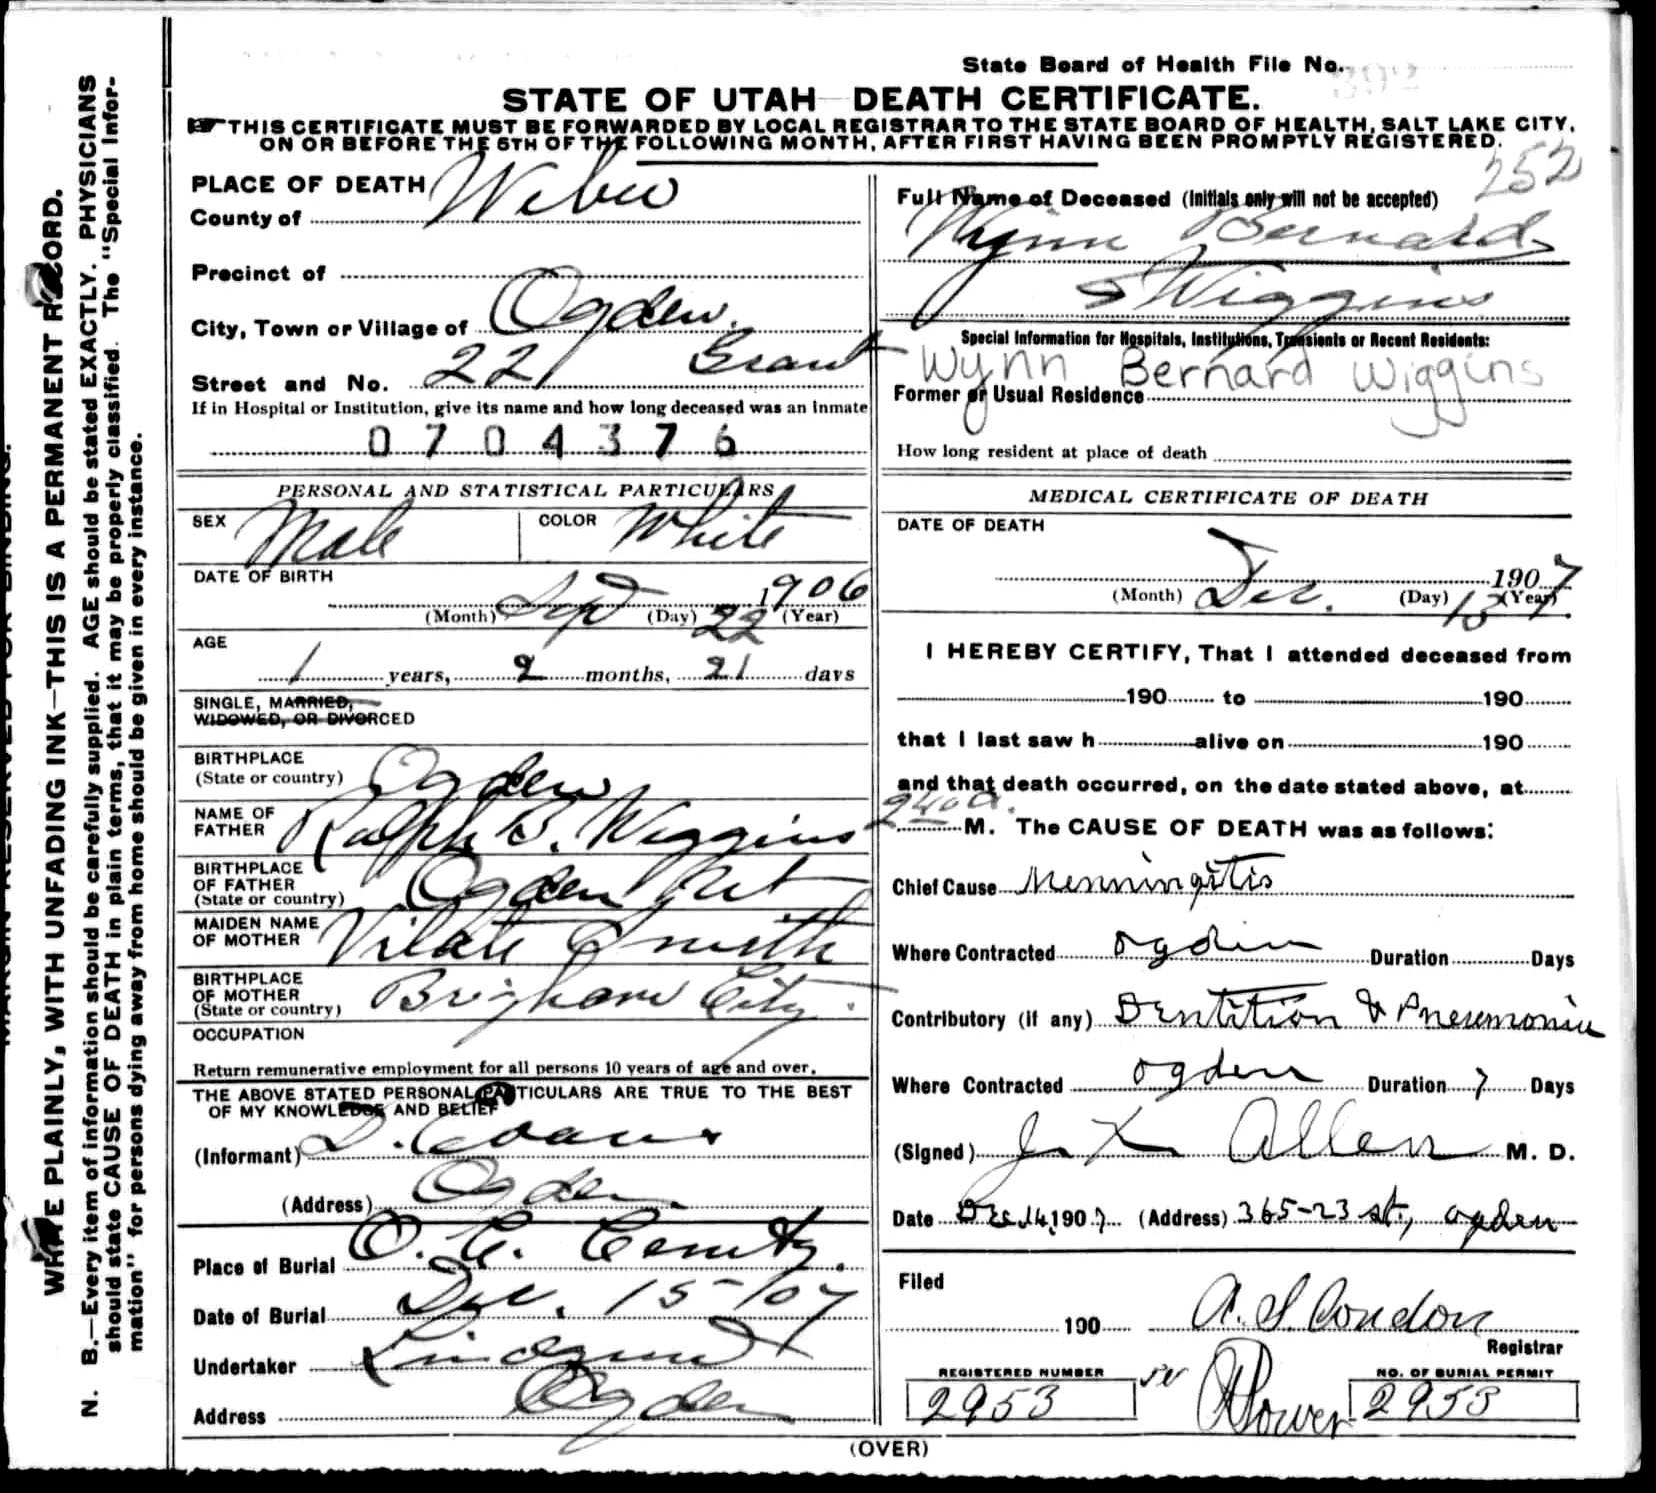 State Board of Health File No.
STATE OF UTAH—DEATH CERTIFICATE.
THIS CERTIFICATE MUST BE FORWARDED BY LOCAL REGISTRAR TO THE STATE BOARD OF HEALTH, SALT LAKE CITY,
ON OR BEFORE THE 5TH OF THE FOLLOWING MONTH, AFTER FIRST HAVING BEEN PROMPTLY REGISTERED.
252
PLACE OF DEATH
County of Weber
Precinct of
City, Town or Village of Ogden
Street and No. 221 Grant
If in Hospital or Institution, give its name and how long deceased was an inmate
0704376
PERSONAL AND STATISTICAL PARTICULARS
SEX Male COLOR White
DATE OF BIRTH
(Month) Sep (Day) 22 1906 (Year)
AGE
1 years, 2 months, 21 days
SINGLE, MARRIED,
WIDOWED, OR DIVORCED
BIRTHPLACE
(State or country) Ogden
NAME OF
FATHER Ralph B. Wiggins
BIRTHPLACE
OF FATHER
(State or country) Ogden Ut
MAIDEN NAME
OF MOTHER Vilate Smith
BIRTHPLACE
OF MOTHER
(State or country) Brigham City.
OCCUPATION
Return remunerative employment for all persons 10 years of age and over.
THE ABOVE STATED PERSONAL PARTICULARS ARE TRUE TO THE BEST
OF MY KNOWLEDGE AND BELIEF
(Informant) D. Evans
(Address) Ogden
Place of Burial O. C. Cemty.
Date of Burial Dec. 15-/07
Undertaker Lindquist
Address Ogden
Full Name of Deceased (Initials only will not be accepted)
Wynn Bernard
Wiggins
Special Information for Hospitals, Institutions, Transients or Recent Residents:
Wynn Bernard Wiggins
Former or Usual Residence
How long resident at place of death
MEDICAL CERTIFICATE OF DEATH
DATE OF DEATH
1907
(Month) Dec. (Day) 13 (Year)
I HEREBY CERTIFY, That I attended deceased from
190 to 190
that I last saw h alive on 190
and that death occurred, on the date stated above, at
240 a. M. The CAUSE OF DEATH was as follows:
Chief Cause Menningitis
Where Contracted Ogden Duration Days
Contributory (if any) Dentition & Pneumonia
Where Contracted Ogden Duration 7 Days
(Signed) Allen M. D.
Date Dec 14, 1907 (Address) 365-23 st., Ogden
Filed
190 A. S. Condon
Registrar
REGISTERED NUMBER
2953
NO. OF BURIAL PERMIT
2953
(OVER)
MARGIN RESERVED FOR BINDING.
WRITE PLAINLY, WITH UNFADING INK—THIS IS A PERMANENT RECORD.
N. B.—Every item of information should be carefully supplied. AGE should be stated EXACTLY. PHYSICIANS
should state CAUSE OF DEATH in plain terms, that it may be properly classified. The "Special Infor-
mation" for persons dying away from home should be given in every instance.